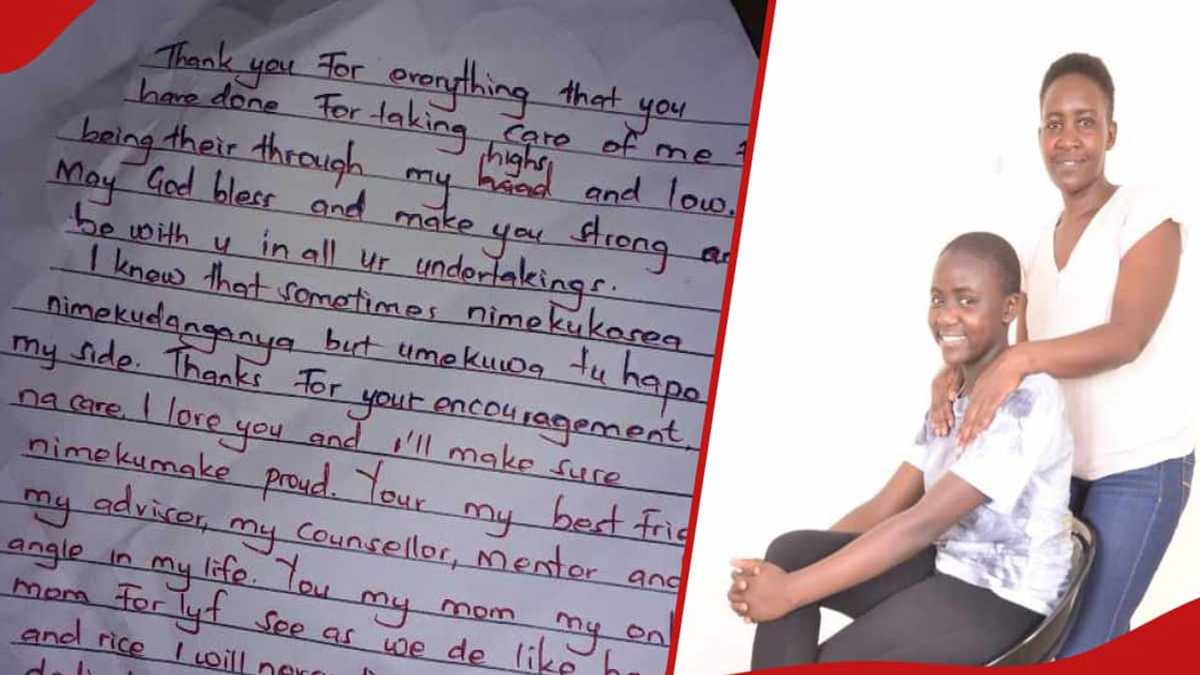 Thank you For everything that you
have done For taking care of me
highs
being their through my and low.
May God bless and make you strong
be with u in all ur undertakings.
I know that sometimes nimekukosea
nimekudanganya but umekuwa tu hapo
my side. Thanks For your encouragement,
na care. I love you and I'll make sure
nimekumake proud. Your my best
my advisor, my counsellor, mentor and
angle in my life. You my mom my
mom For lyf see as we de like
and rice I will